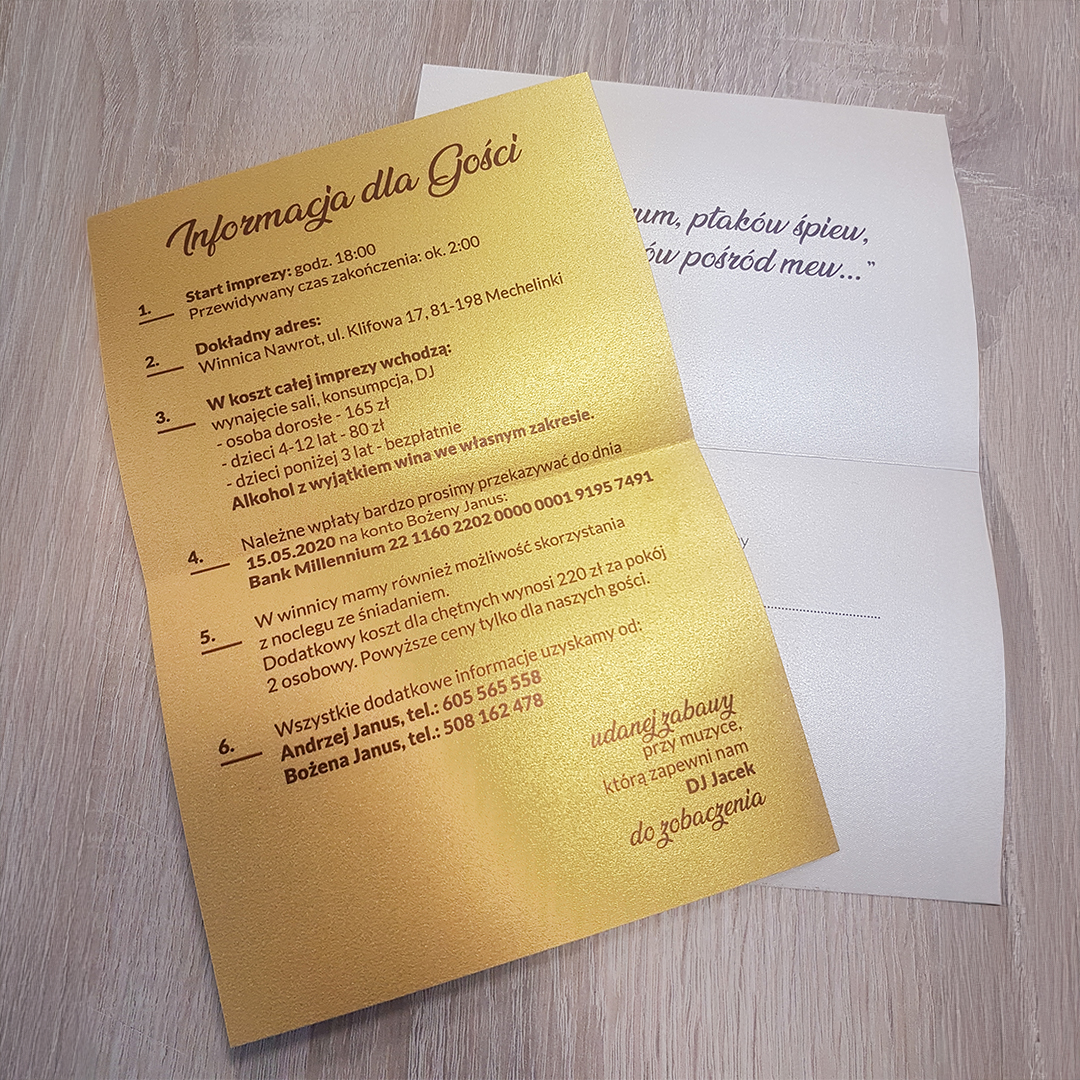 Informacja dla Gości
1. Start imprezy: godz. 18:00
Przewidywany czas zakończenia: ok. 2:00
2. Dokładny adres:
Winnica Nawrot, ul. Klifowa 17, 81-198 Mechelinki
3. W koszt całej imprezy wchodzą:
wynajęcie sali, konsumpcja, DJ
- osoba dorosłe - 165 zł
- dzieci 4-12 lat - 80 zł
- dzieci poniżej 3 lat - bezpłatnie
Alkohol z wyjątkiem wina we własnym zakresie.
4. Należne wpłaty bardzo prosimy przekazywać do dnia
15.05.2020 na konto Bożeny Janus:
Bank Millennium 22 1160 2202 0000 0001 9195 7491
5. W winnicy mamy również możliwość skorzystania
z noclegu ze śniadaniem.
Dodatkowy koszt dla chętnych wynosi 220 zł za pokój
2 osobowy. Powyższe ceny tylko dla naszych gości.
6. Wszystkie dodatkowe informacje uzyskamy od:
Andrzej Janus, tel.: 605 565 558
Bożena Janus, tel.: 508 162 478
udanej zabawy
przy muzyce,
którą zapewni nam
DJ Jacek
do zobaczenia
ptaków śpiew,
pośród mew..."